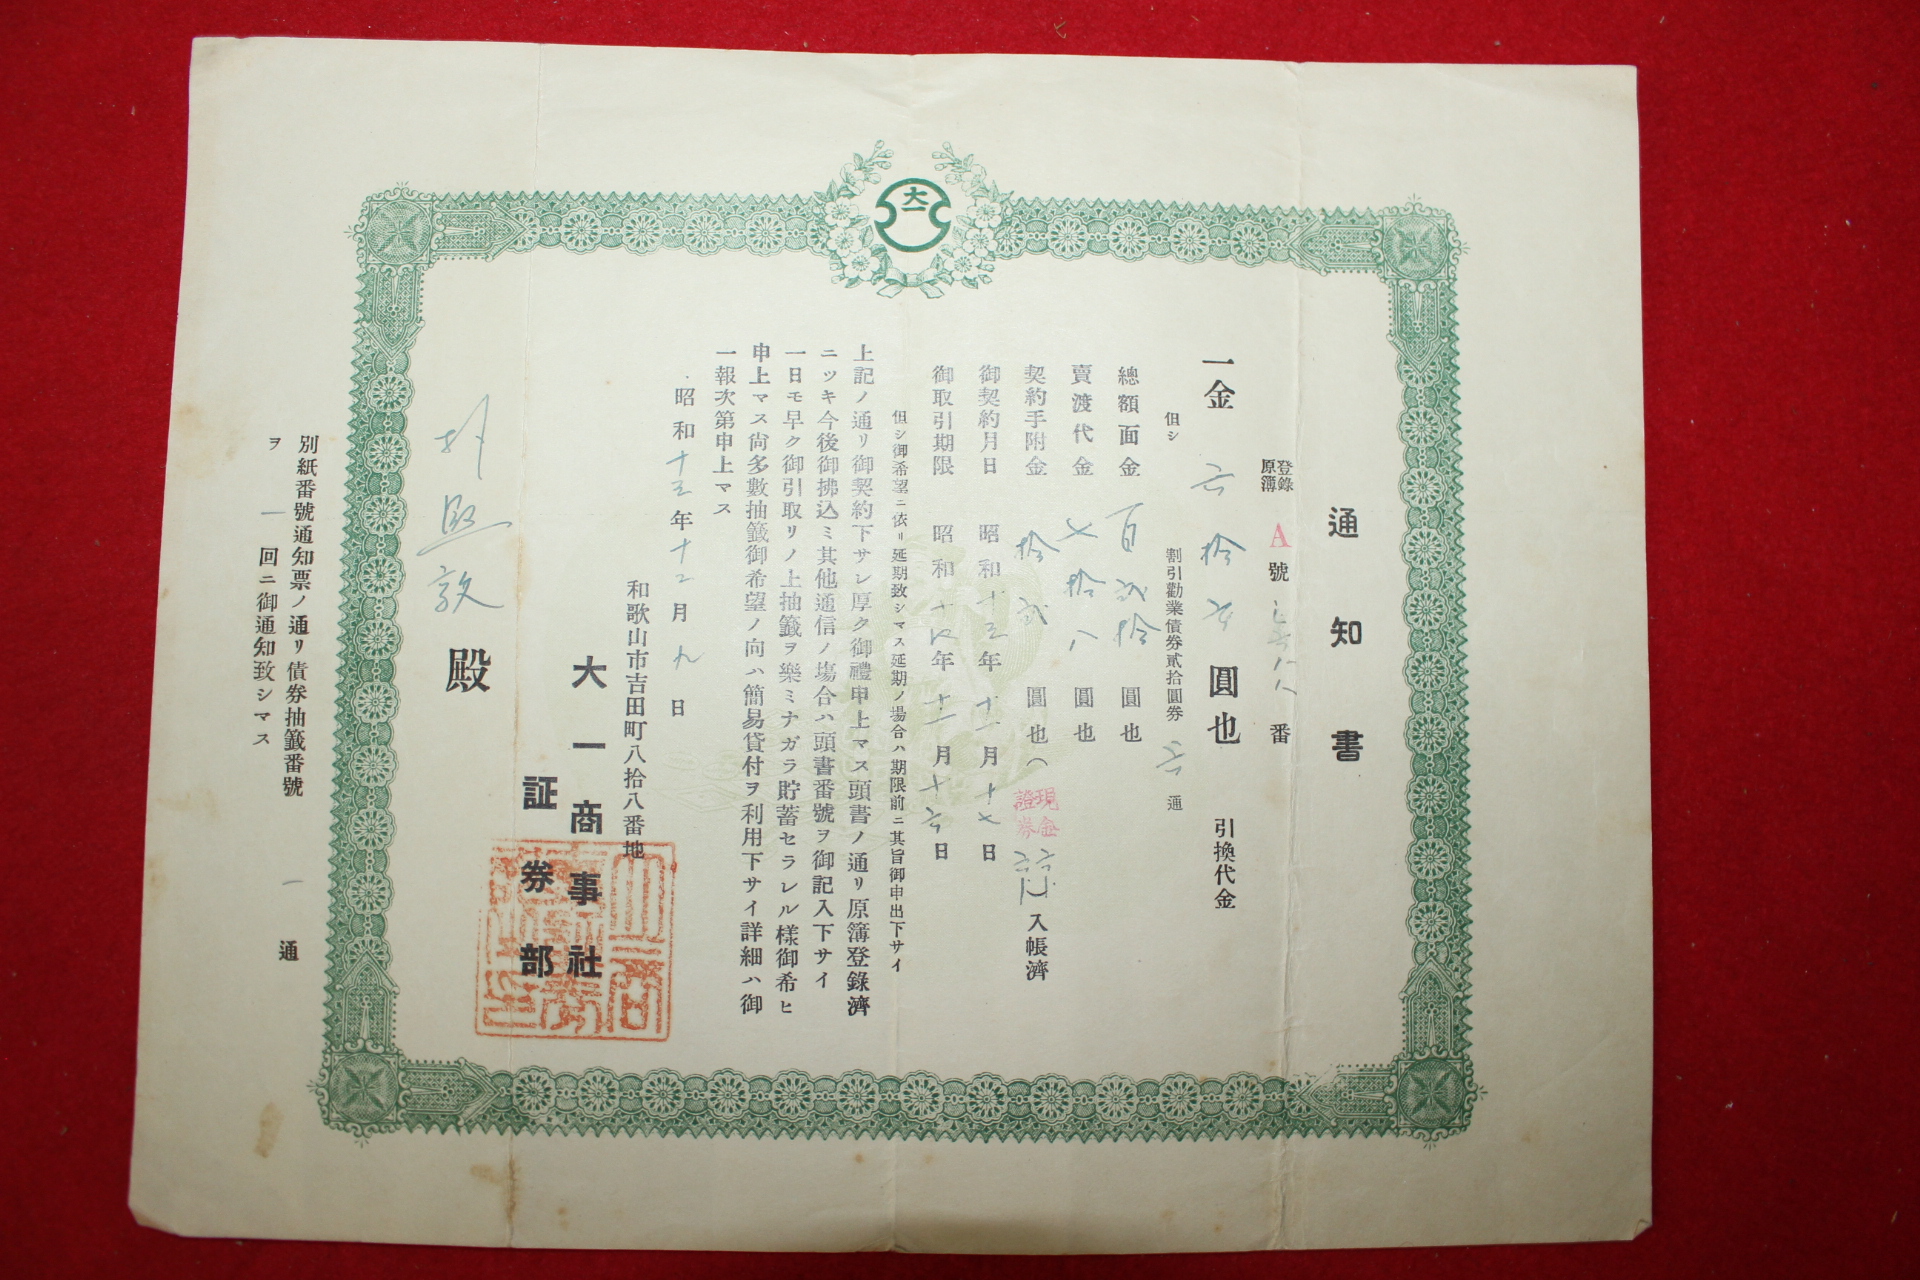 大一
通知書
登錄原簿 A 號 八八 番
一金 六拾六圓也 引換代金
但シ 割引勸業債券貳拾圓券 六 通
總額面金 百貳拾圓也
賣渡代金 七拾八圓也
契約手附金 拾貳圓也( 現金證券 入帳濟
御契約月日 昭和十三年十一月十七日
御取引期限 昭和十四年十一月十六日
但シ御希望ニ依リ延期致シマス延期ノ場合ハ期限前ニ其旨御申出下サイ
上記ノ通リ御契約下サレ厚ク御禮申上マス頭書ノ通リ原簿登錄濟
ニツキ今後御拂込ミ其他通信ノ場合ハ頭書番號ヲ御記入下サイ
一日モ早ク御引取リノ上抽籤ヲ樂ミナガラ貯蓄セラレル樣御希ヒ
申上マス尙多數抽籤御希望ノ向ハ簡易貸付ヲ利用下サイ詳細ハ御
一報次第申上マス
昭和十三年十二月九日
和歌山市吉田町八拾八番地
大一商事社
証券部
朴熙敦 殿
別紙番號通知票ノ通リ債券抽籤番號 一 通
ヲ 一 回ニ御通知致シマス